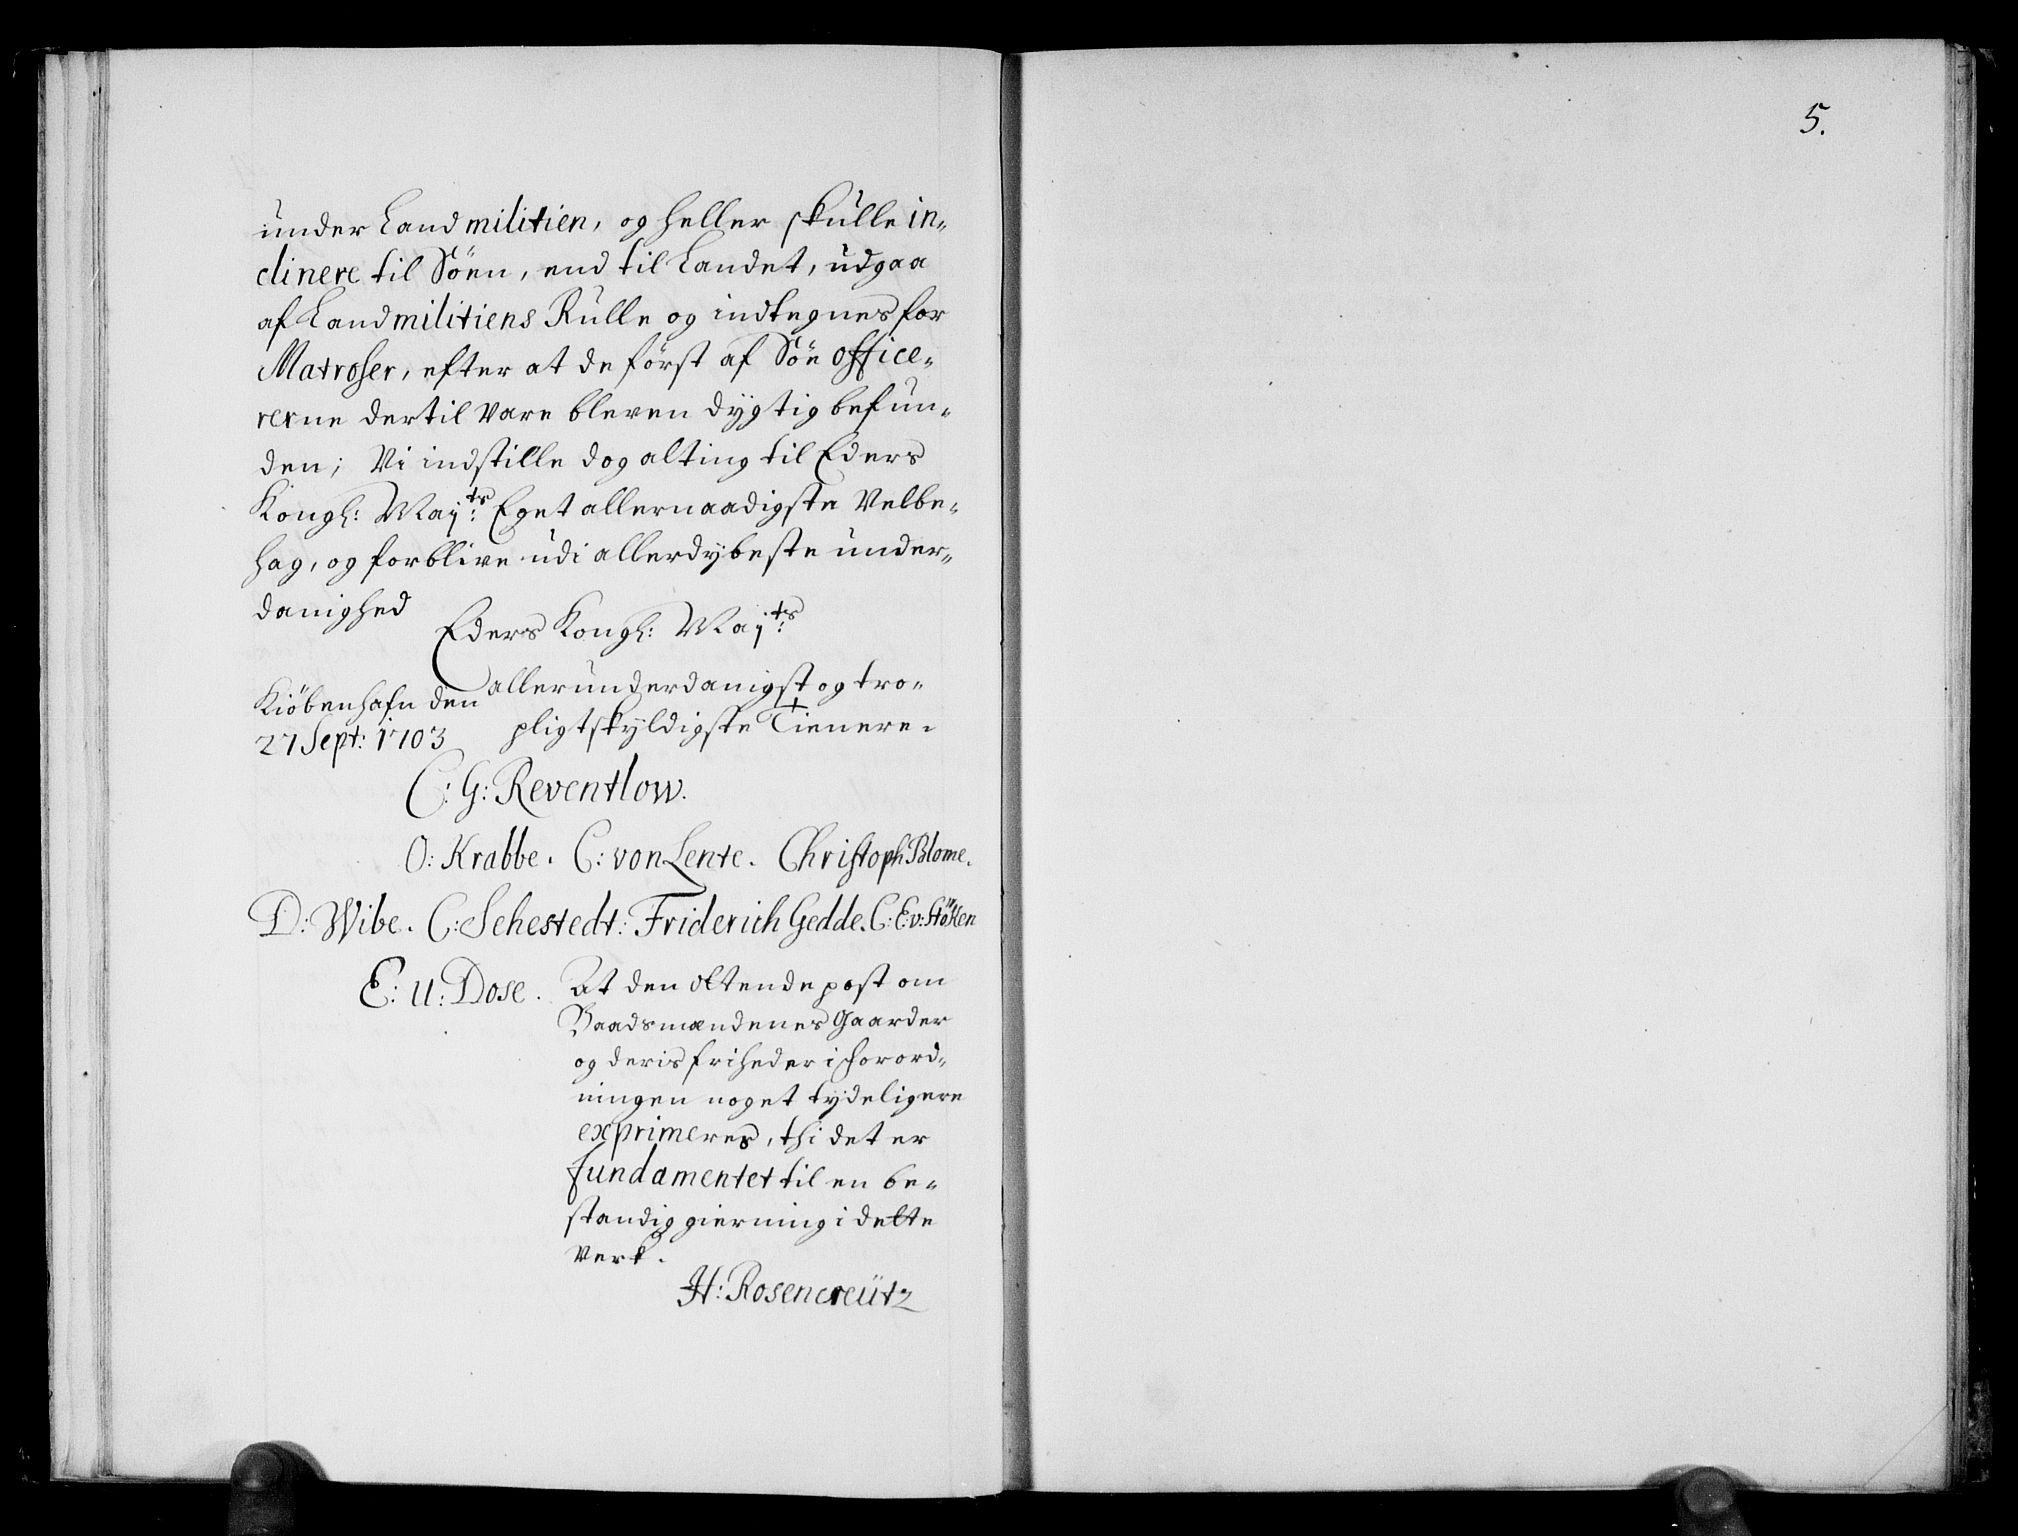 under Landmilitien, og heller skulle in-
clinere til Söen, end til Landet, udgaa
af Landmilitiens Rulle og indtegnes for
Matroser, efter at de först af Söe office-
rerne dertil vare bleven dygtig befun-
den; Vi indstille dog alting til Eders
Kongl: Maj:ts Eget allernaadigste Velbe-
hag, og forblive udi allerdybeste under-
danighed
Eders Kongl: Maj:ts
allerunderdanigst og tro-
pligtskyldigste Tienere.
Kiöbenhafn den
27 Sept: 1703
C: G: Reventlow.
O: Krabbe. C: von Lente. Christoph Blome.
D: Wibe. C: Sehestedt: Friderich Gedde. C: E: v: Stöken
E: U: Dose.
At den ottende post om
Baadsmændenes Gaarder
og deris friheder i forord-
ningen noget tydeligere
exprimeres, thi det er
fundamentet til en be-
standig gierning i dette
Verk.
H: Rosencreütz
5.